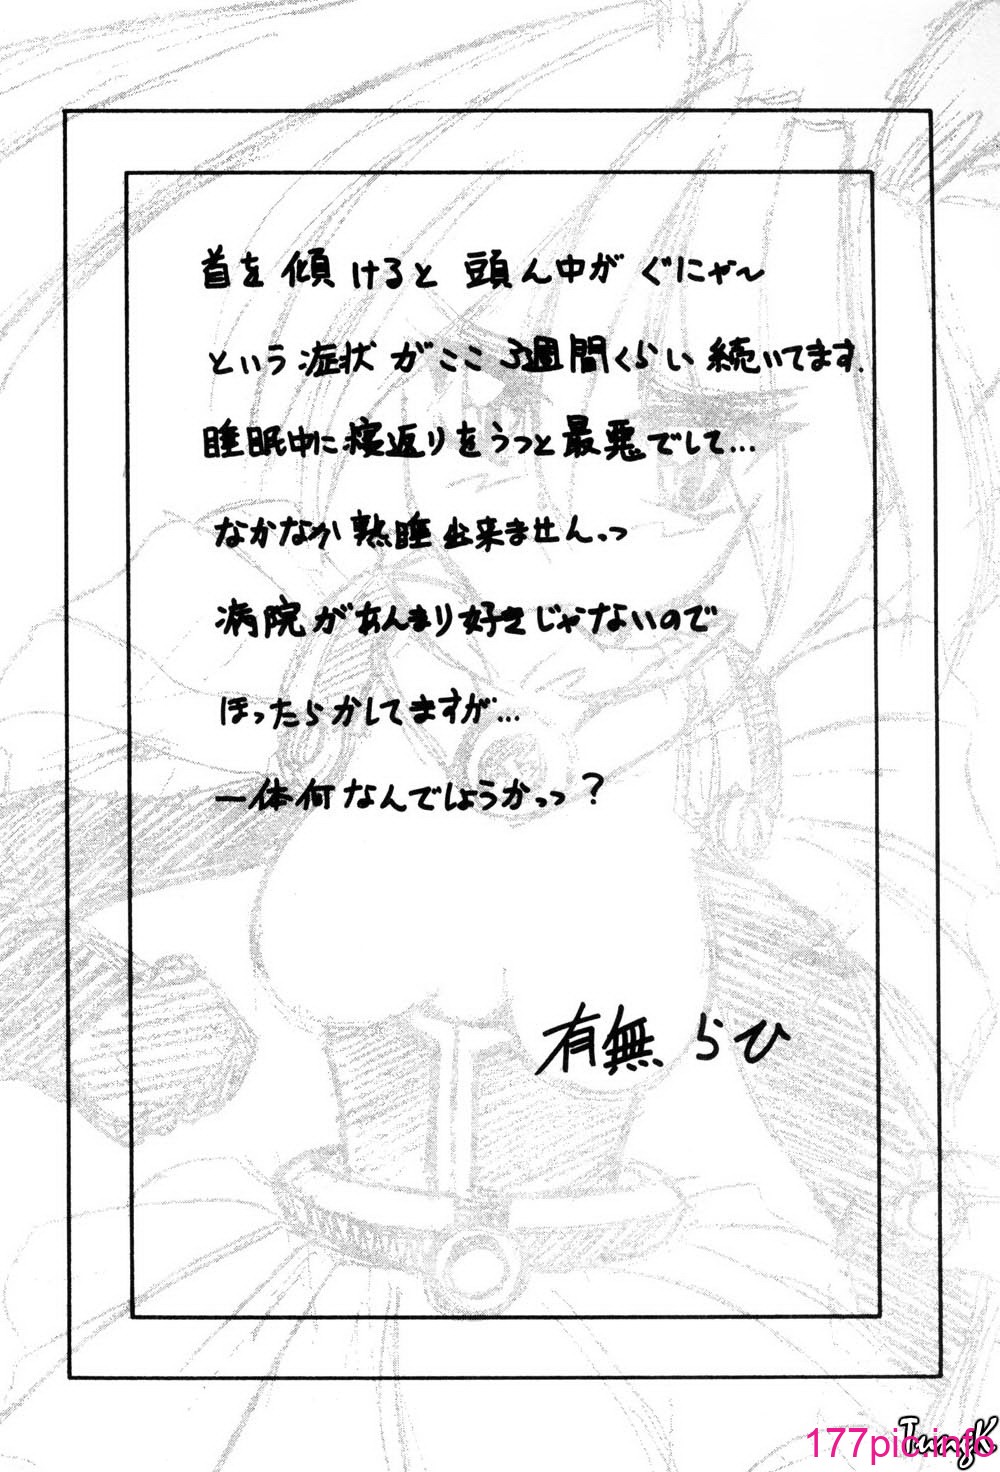 首を傾けると頭ん中がぐにゃ〜
という症状がここ3週間くらい続いてます.
睡眠中に寝返りをうつと最悪でして...
なかなか熟睡出来ませんっっ
病院があんまり好きじゃないので
ほったらかしてますが...
一体何なんでしょうかっっ?
有無らひ
TungK
177pic.info